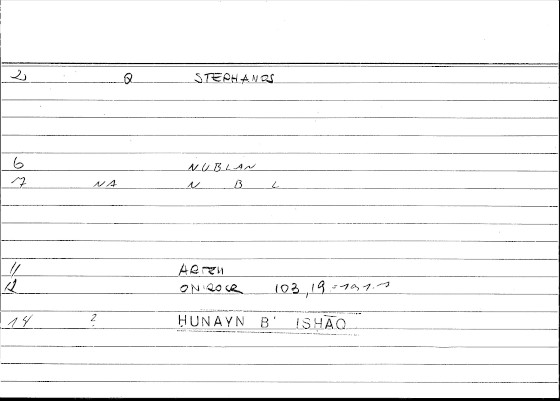 2 Q STEPHANOS
6 NUBLAN
7 NA N B L
11 ARTEM
12 ONIROCR 103,19 = 191.1
14 ? HUNAYN B' ISHĀQ